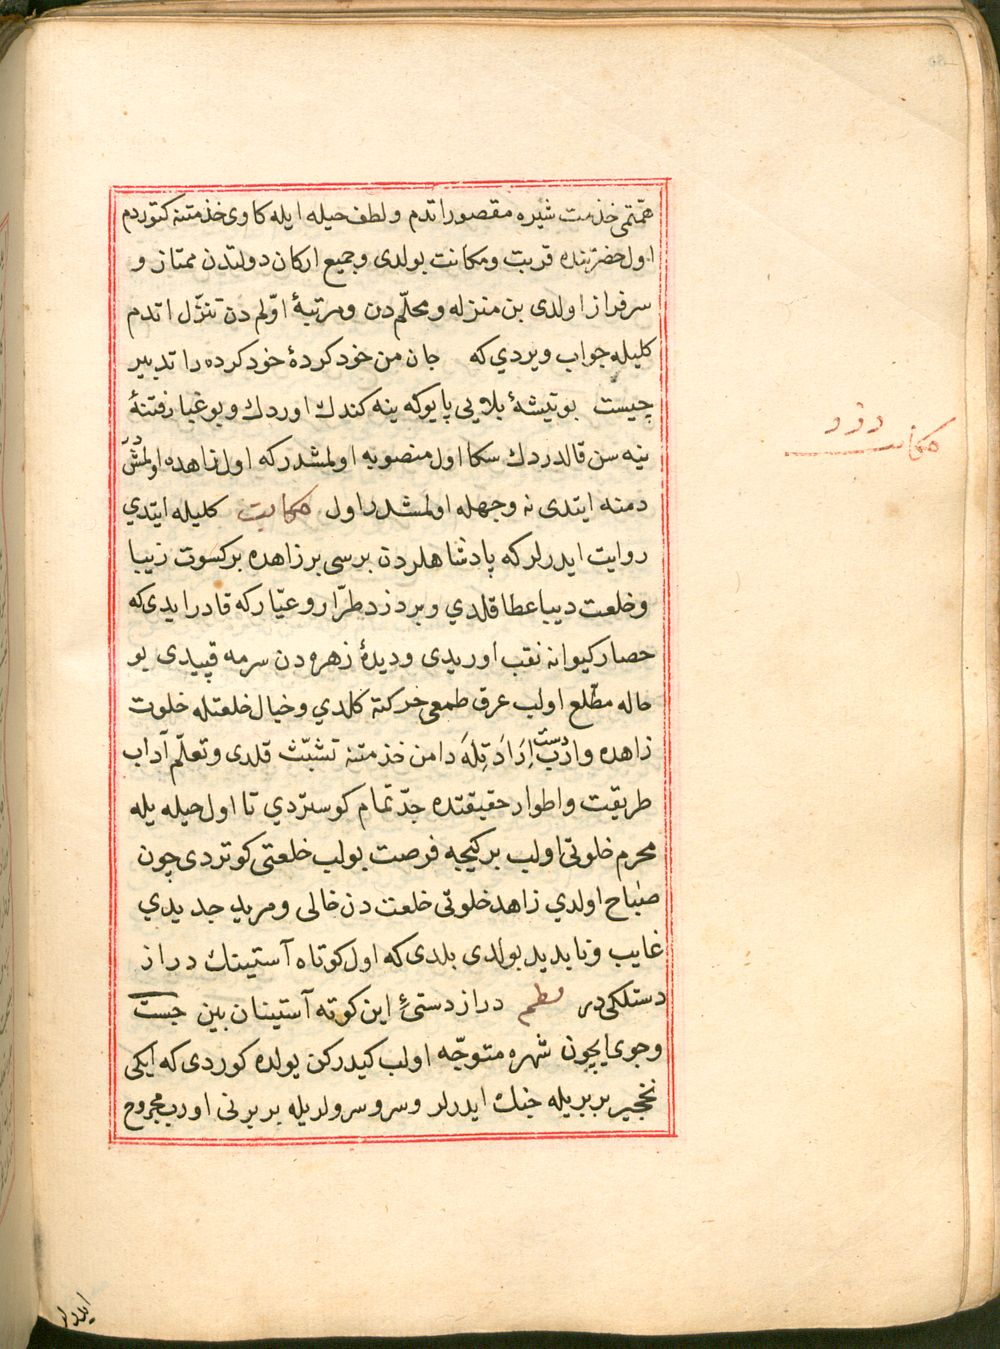 همّتمی خذمت شیره مقصور اتدم و لطف حیله ایله کاوی خذمتنه کتوردم
اول حضرتنده قربت و مکانت بولدی و جمیع ارکان دولتدن ممتاز و
سرفراز اولدی بن منزله و محلّم دن و مرتبهٔ اوّلم دن تنزّل اتدم
کلیله جواب ویردی که جان من خود کردهٔ خود کرده را تدبیر
چیست بو تیشهٔ بلایی پایوکه ینه کندك اوردك و بو غبار فتنهٔ
ینه سن قالدردك سکا اول منصوبه اولمشدر که اول زاهده اولمش در
دمنه ایتدی نه وجهله اولمشدر اول حکایت کلیله ایتدي
روایت ایدرلر که پادشاهلردن برسی بر زاهده بر کسوت زیبا
و خلعت دیبا عطا قلدي و بر دزد طرّار و عیّار که قادر ایدی که
حصار کیوانه نقب اوریدی و دیدهٔ زهره دن سرمه قپیدی بو
حاله مطّلع اولب عرق طمعی حرکته کلدي و خیال خلعتله خلوت
زاهده واروب دست اِرَادَتِلَه دامن خذمتنه تشبّث قلدی و تعلّم آداب
طریقت و اطوار حقیقتده جدّ تمام کوستردي تا اول حیله یله
محرم خلوتی اولب بر کیجه فرصت بولب خلعتی کوتردی چون
صباح اولدي زاهد خلوتی خلعت دن خالی و مرید جدیدي
غایب و ناپدید بولدی بلدی که اول کوتاه آستینك دراز
دستلکی در نظم دراز دستیٔ این کوته آستینان بین جست
و جوی ایچون شهره متوجّه اولب کیدرکن یولده کوردی که ایکی
نخجیر بربریله جنك ایدرلر و سرو سرولریله بربرنی اورب مجروح
ایدرلر
حکایت دزد